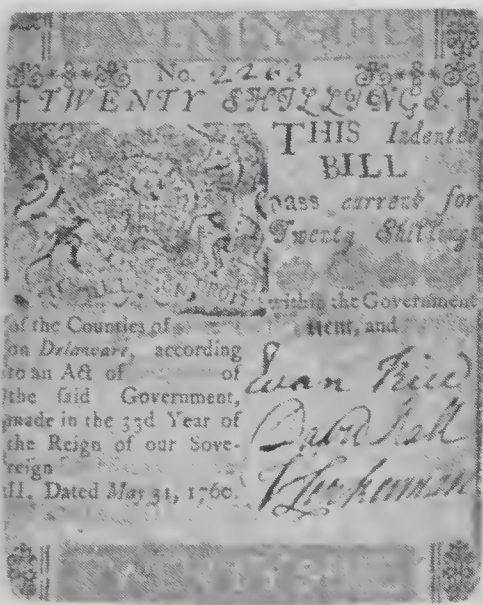 No. 2263
TWENTY SHILLINGS.
THIS Indented
BILL
pass current for
Twenty Shillings
within the Government
of the Counties of
ment, and
on Delaware, according
to an Act of of
the said Government,
made in the 33d Year of
the Reign of our Sove-
reign
II. Dated May 31, 1760.
Evan Rice
David Hall